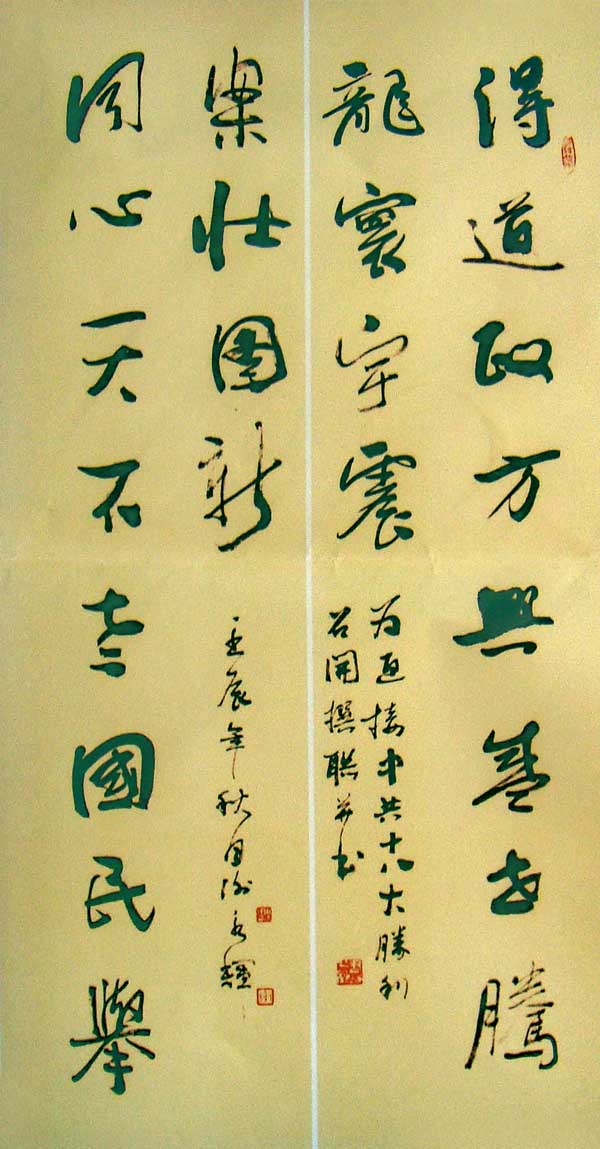 得道政方興盛世騰
龍寰宇震
為迎接中共十八大勝利
召開撰聯并書
同心天不老國民舉
壮圖新
壬辰年秋